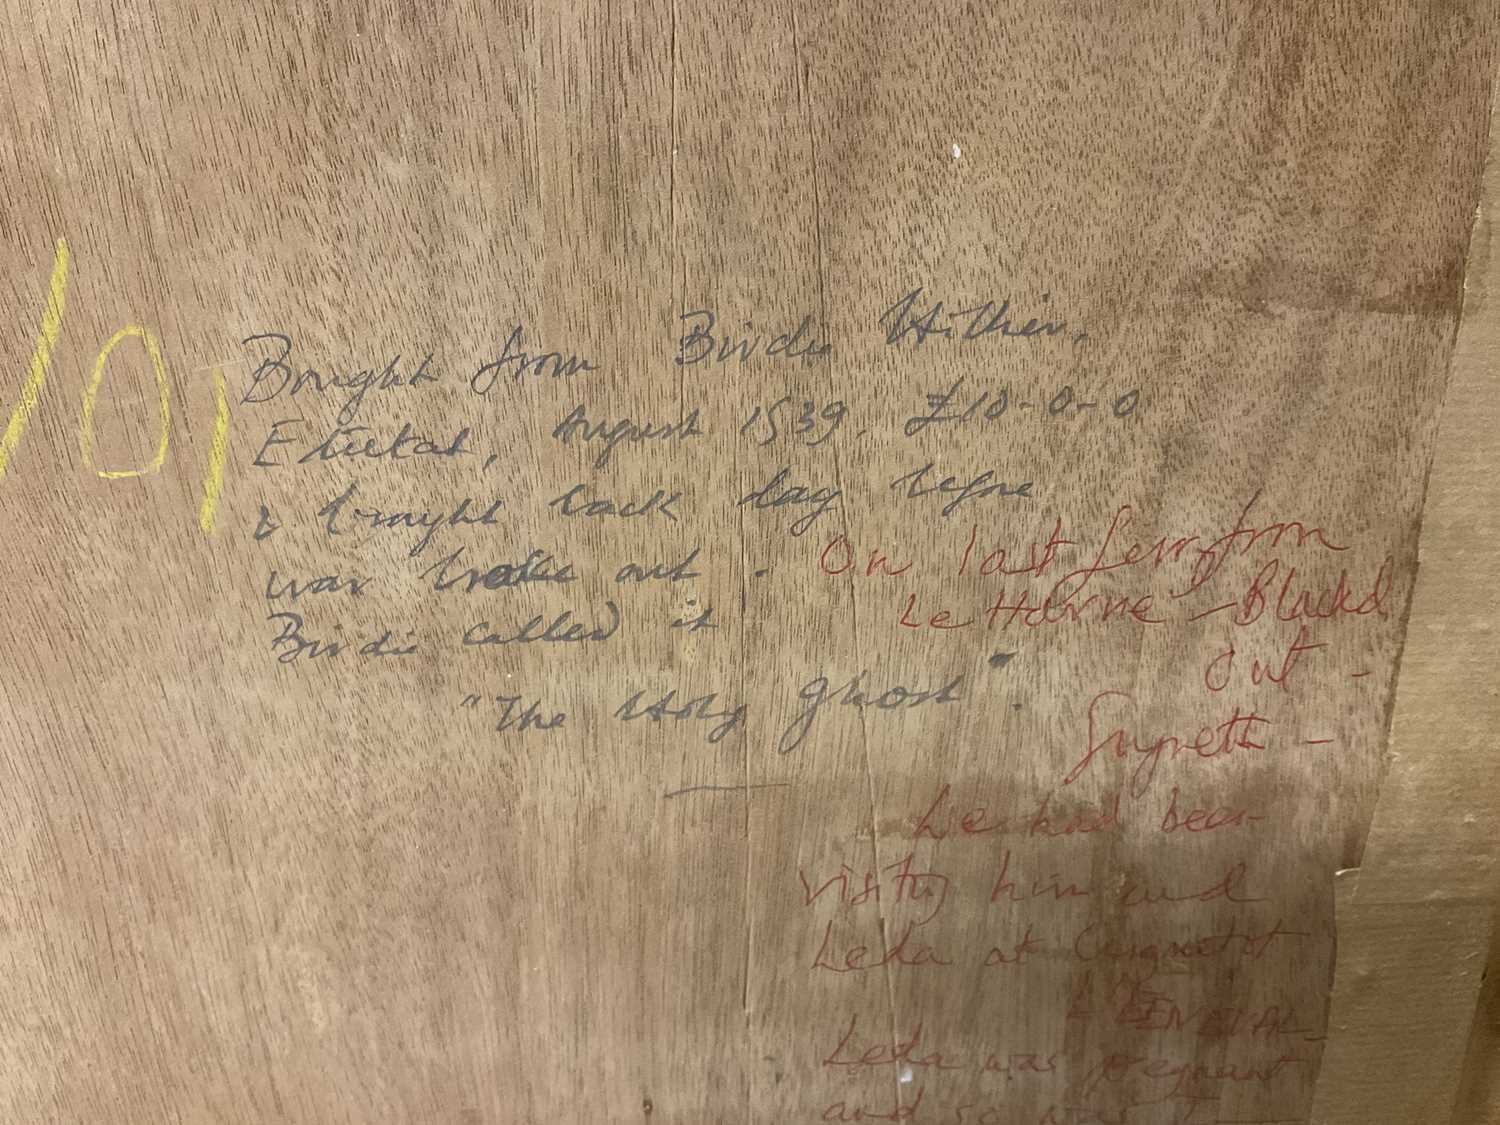 101
Bought from Birdie
Etretat, August 1939. £10-0-0
& brought back day before
war broke out.
Birdie called it
"The Holy Ghost".
On last ferry from
Le Havre - Blackd
out -
We had been
visiting him and
Leda at
Leda was pregnant
and so was I